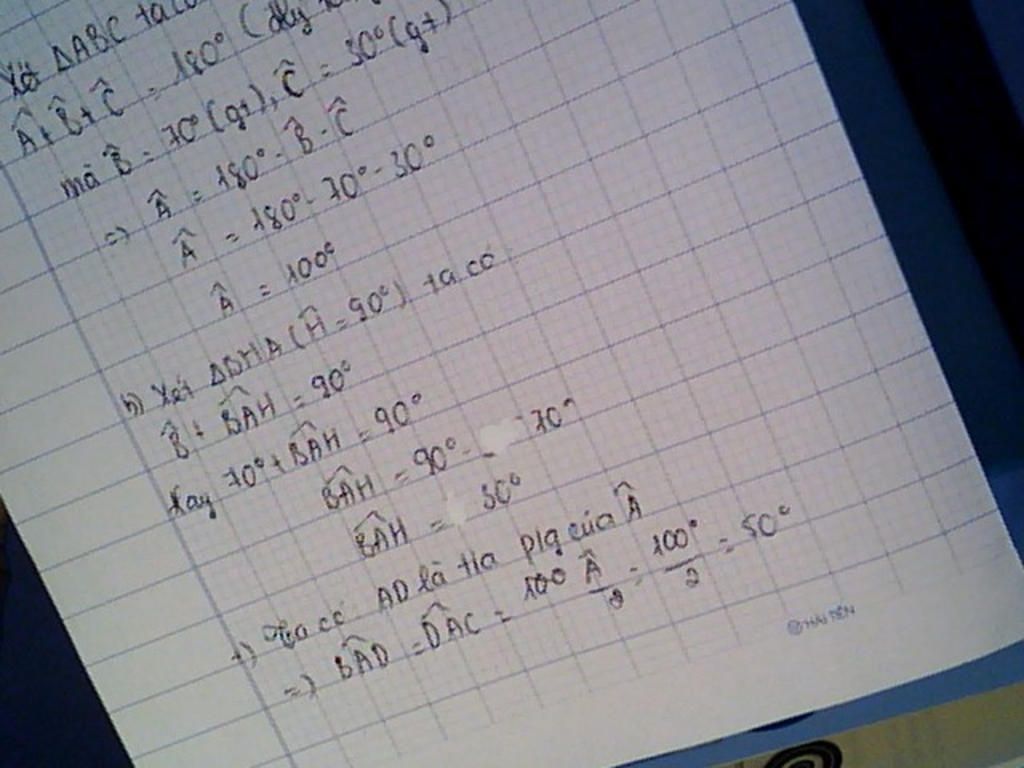 Xét ΔABC ta có
Â + B̂ + Ĉ = 180° (
mà B̂ = 70° (gt), Ĉ = 30° (gt)
=> Â = 180° - B̂ - Ĉ
Â = 180° - 70° - 30°
Â = 100°
b) Xét ΔBHA (Ĥ = 90°) ta có
B̂ + BAĤ = 90°
Hay 70° + BAĤ = 90°
BAĤ = 90° - 70°
BAĤ = 30°
+) Ta có AD là tia p/g của Â
=> BAD̂ = DAĈ = 100 Â/2 = 100°/2 = 50°
HẢI TIẾN